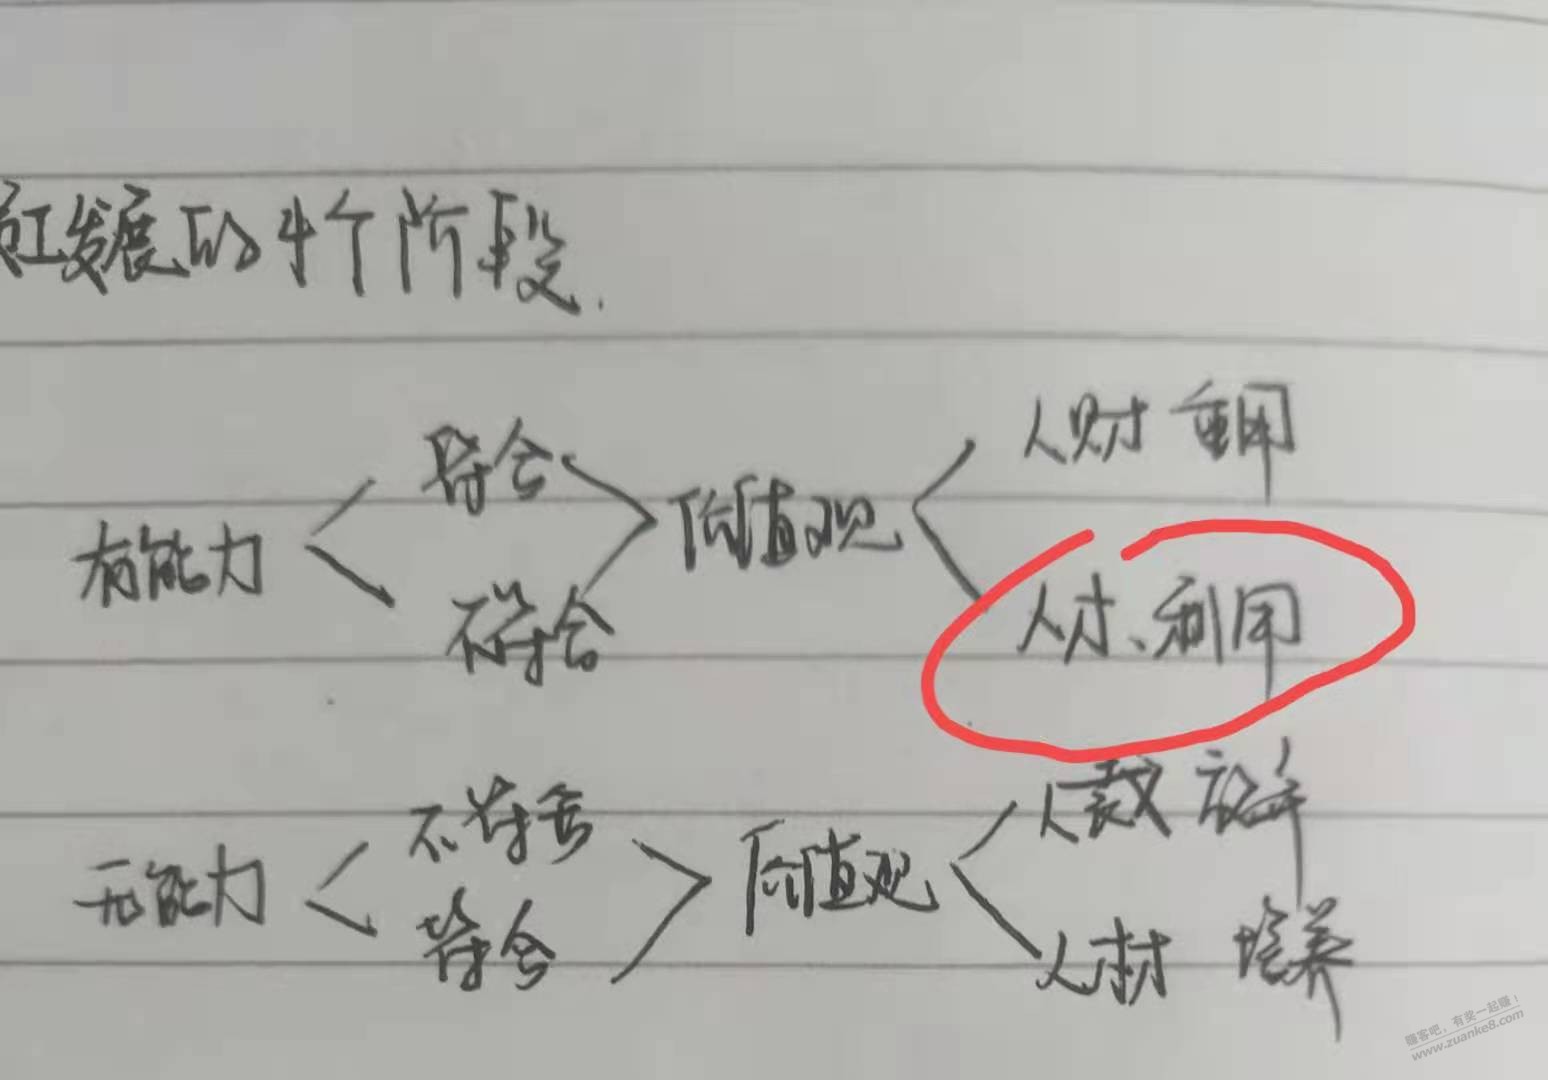 员工发展的4个阶段.
符合
人财 重用
有能力
价值观
不符合
人才、利用
不符合
人裁 放弃
无能力
价值观
符合
人材 培养
赚客吧，有奖一起赚！
www.zuanke8.com